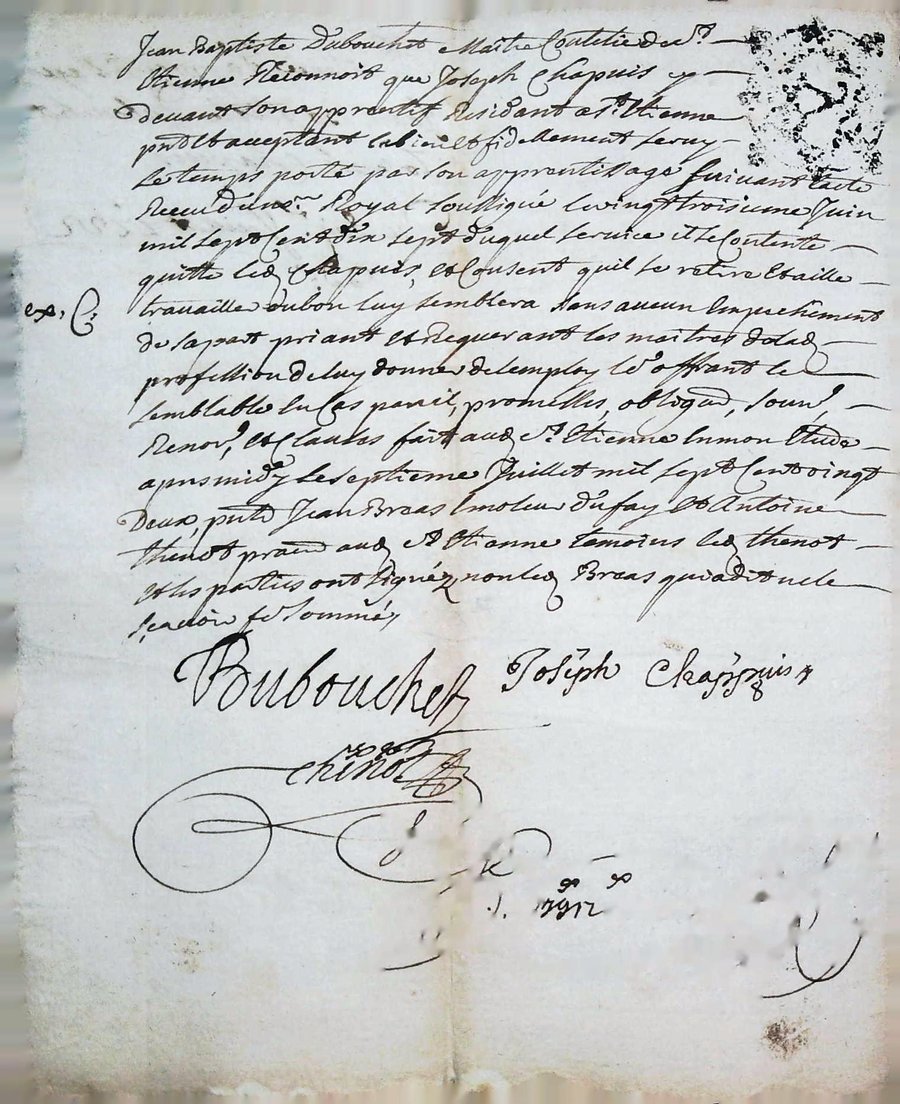 Jean Baptiste Dubouchet Maitre Coutelie de St
Etienne Reconnoit que Joseph Chapuis cy
devant son apprentif Residant a St Etienne
pnt et acceptant la bien et fidellement servy
le temps porté par son apprentissage suivant lacte
Receu du nre Royal soussigné le vingt troisieme Juin
mil sept Cent dix sept duquel service il se Contente
quitte led Chapuis, et Consent quil se retire et aille
travaille ou bon luy semblera sans aucun Empechement
ex. C. de sa part priant et Requerant les maitres de lad
profession de luy donner de lemploy le offrant le
semblable en Cas pareil, promesses, obligaõ, soun,
Renon, et Clauses fait aud St Etienne en mon Etude
apres midy le septieme Juillet mil sept Cent vingt
Deux, pnts Jean Breas Emoleu dufay et Antoine
thenot praen aud St Etienne temoins led thenot
et les parties ont signéz non led Breas qui a dit ne le
scavoir de sommé,
Dubouchet Joseph Chappuis
thenot